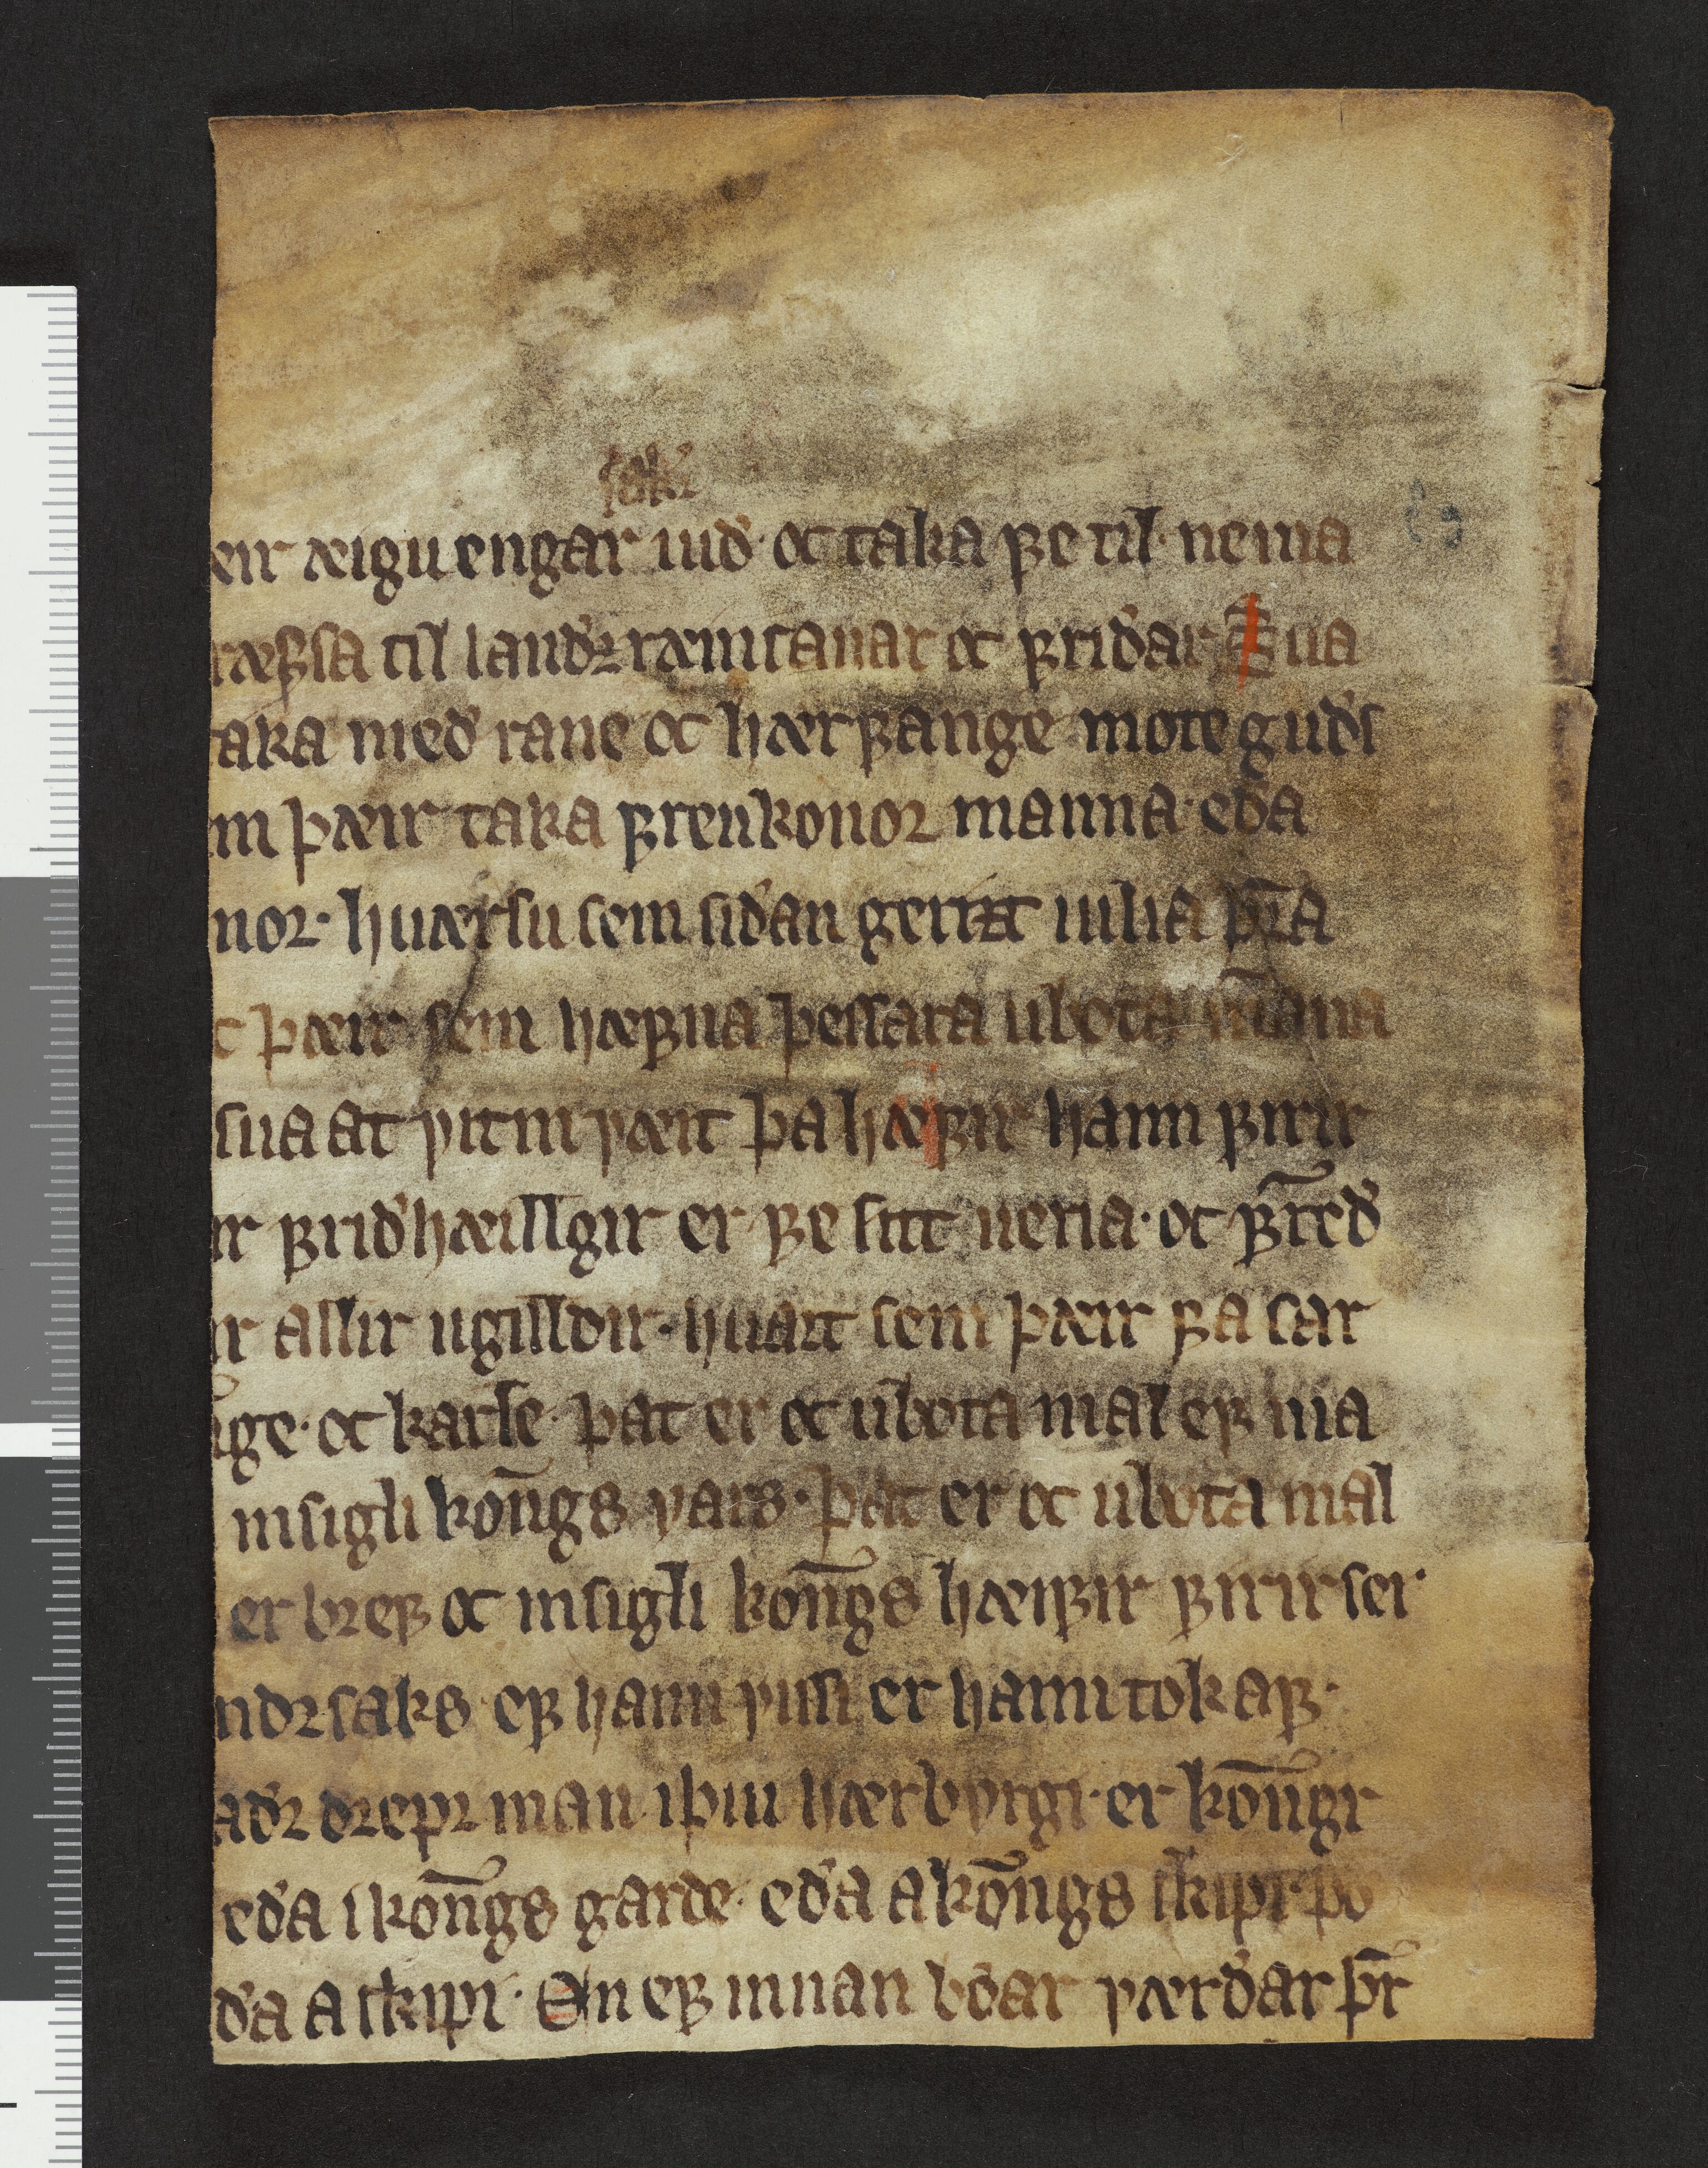 sakr
eir æigu engar uið· oc taka ꝼe til· nema
ræꝼsa til landꝛræinsanar oc ꝼriðar Sua
aka með rane oc hærꝼange mote guðs
m þæir taka ꝼrenkonoꝛ manna· eða
noꝛ· huærsu sem siðan gerizt uilia þr̄a
c þæir sem hæꝼna þessara ubota m̄anna
sua at vitni væit þa hæꝼir hann ꝼirir
ir ꝼriðhæillgir er ꝼe sitt ueria· oc ꝼr̄eð
ir allir ugilldir· huart sem þæir ꝼa sar
n̄ge· oc karlle· þat er oc ubota mal eꝼ ma
insigli kon̄gs vars· þat er oc ubota mal
er bꝛeꝼ oc insigli kon̄gs hæiꝼir ꝼirir ser·
ndꝛsaks· eꝼ hann visi er hann tok aꝼ·
aðꝛ dꝛepꝛ man iþui hærbyrgi· er kon̄gr
eða i kon̄gs garde· eða a kon̄gs skipi· þo
ða a skipi· En eꝼ innan bóar værðar þr̄